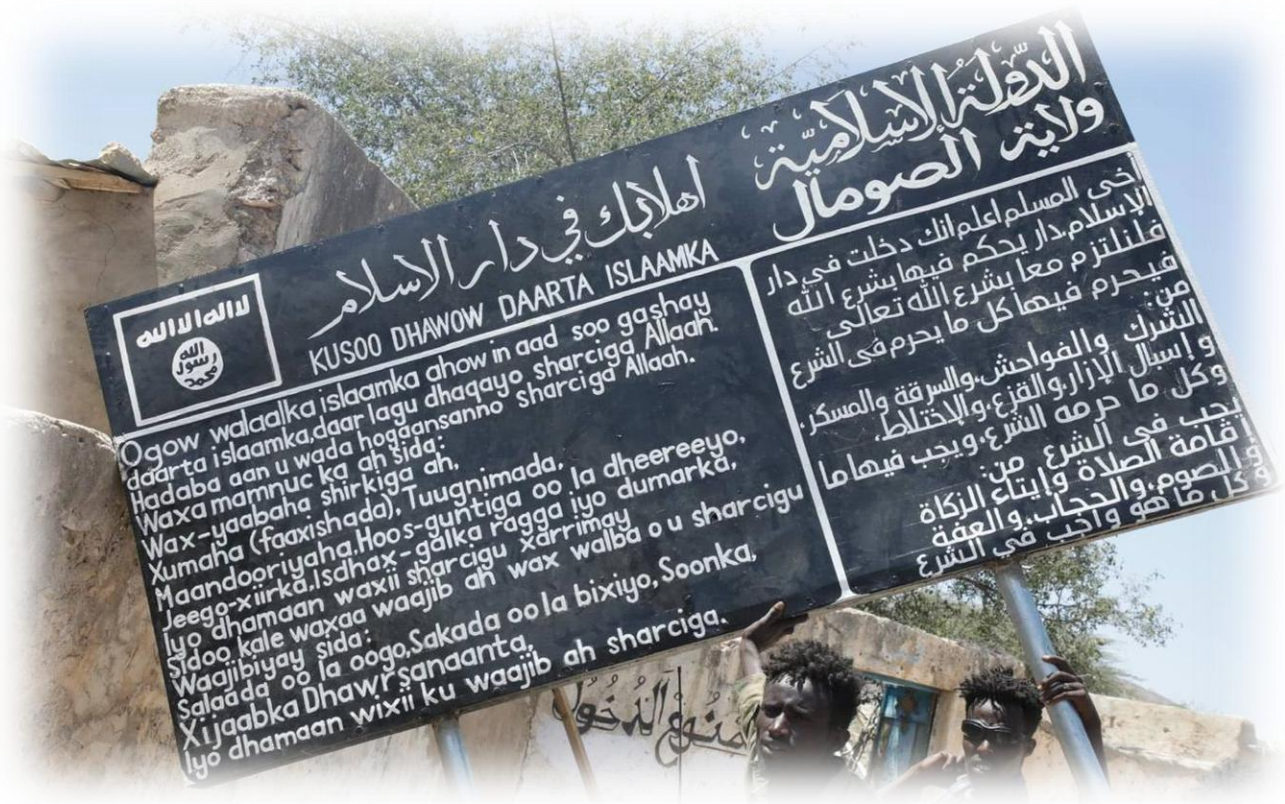 الدولة الإسلامية
ولاية الصومال
اهلا بك في دار الاسلام
KUSOO DHAWOW DAARTA ISLAAMKA
لااله الا الله
الله
رسول
محمد
Ogow walaalka islaamka ahow in aad soo gashay
daarta islaamka,daar lagu dhaqayo sharciga Allaah.
Hadaba aan u wada hogaansanno sharciga Allaah.
Waxa mamnuc ka ah sida:
Wax-yaabaha shirkiga ah,
Xumaha (faaxishada), Tuugnimada,
Maandooriyaha,Hoos-guntiga oo la dheereeyo,
Jeego-xiirka,Isdhax-galka ragga iyo dumarka,
Iyo dhamaan waxii sharcigu xarrimay
Sidoo kale waxaa waajib ah wax walba o u sharcigu
Waajibiyay sida:
Salaada oo la oogo,Sakada oo la bixiyo,Soonka,
Xijaabka Dhawrsanaanta,
Iyo dhamaan wixii ku waajib ah sharciga.
أخى المسلم اعلم انك دخلت في دار
الإسلام,دار يحكم فيها بشرع الله
فلنلتزم معا بشرع الله تعالى
فيحرم فيها كل ما يحرم فى الشرع
من:
الشرك والفواحش,والسرقة والمسكر,
و إسبال الإزار,والقزع,والإختلاط,
وكل ما حرمه الشرع,ويجب فيها ما
يجب في الشرع من:
إقامة الصلاة وإيتاء الزكاة
و الصوم,والحجاب,والعفة
وكل ما هو واجب في الشرع
ممنوع الدخول